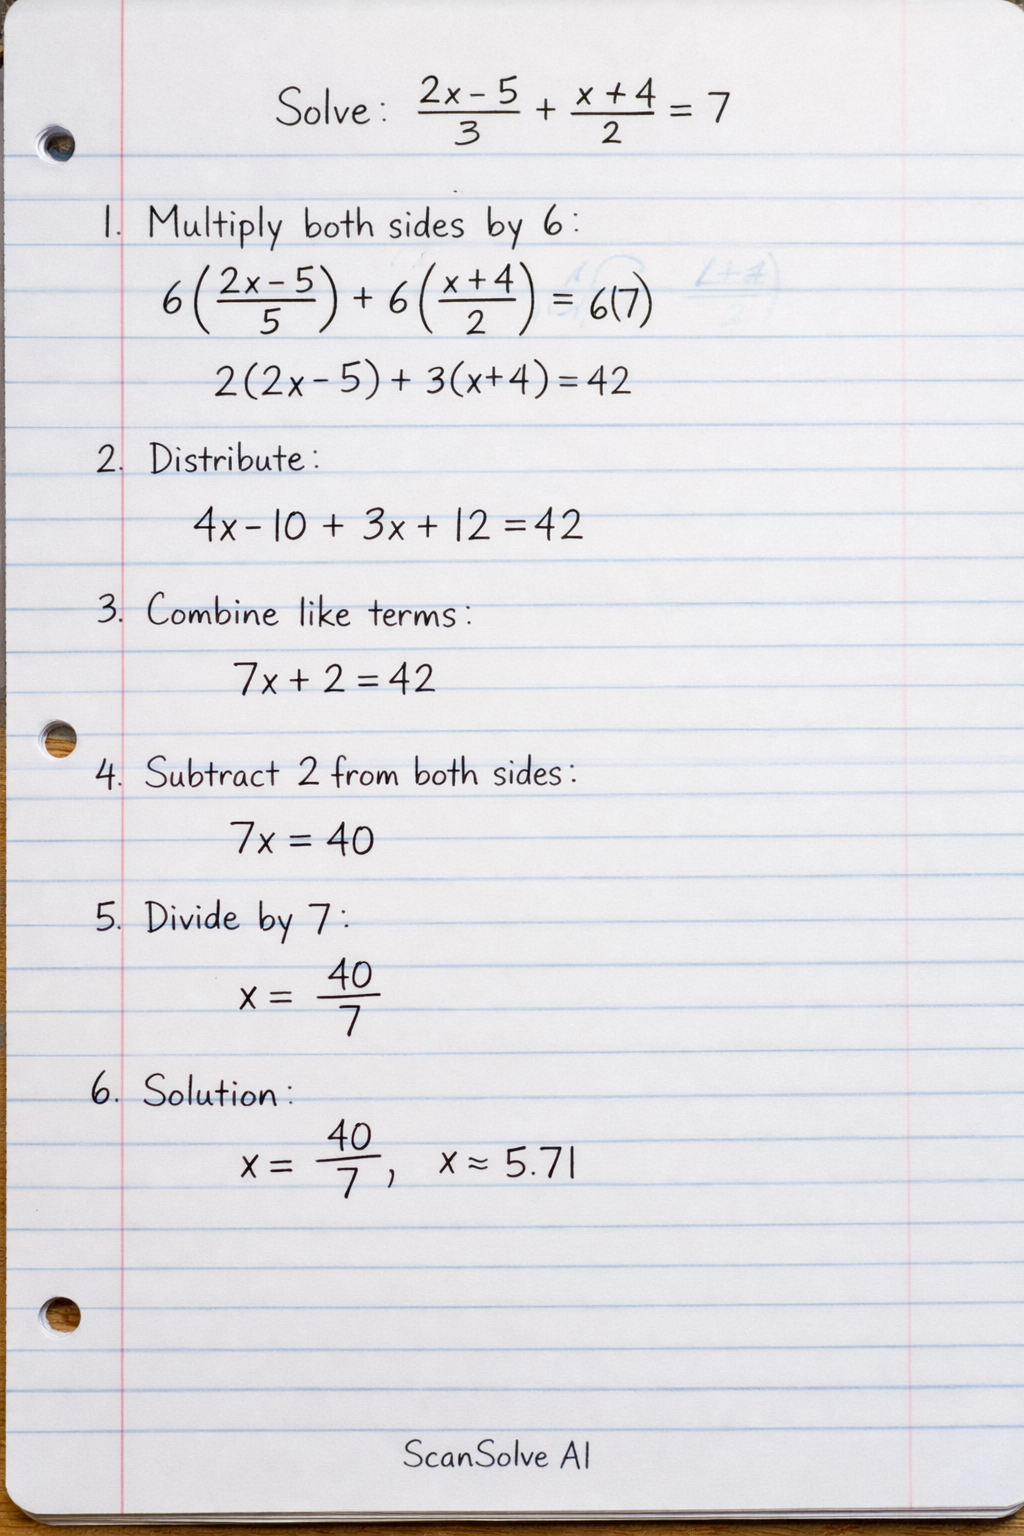 Solve: (2x-5)/3 + (x+4)/2 = 7
1. Multiply both sides by 6:
6((2x-5)/5) + 6((x+4)/2) = 6(7)
2(2x-5) + 3(x+4) = 42
2. Distribute:
4x-10 + 3x + 12 = 42
3. Combine like terms:
7x + 2 = 42
4. Subtract 2 from both sides:
7x = 40
5. Divide by 7:
x = 40/7
6. Solution:
x = 40/7, x ≈ 5.71
ScanSolve AI